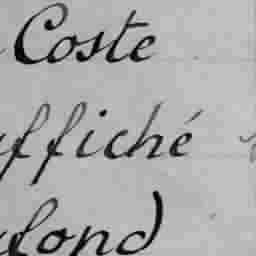 Coste
affiché
fond